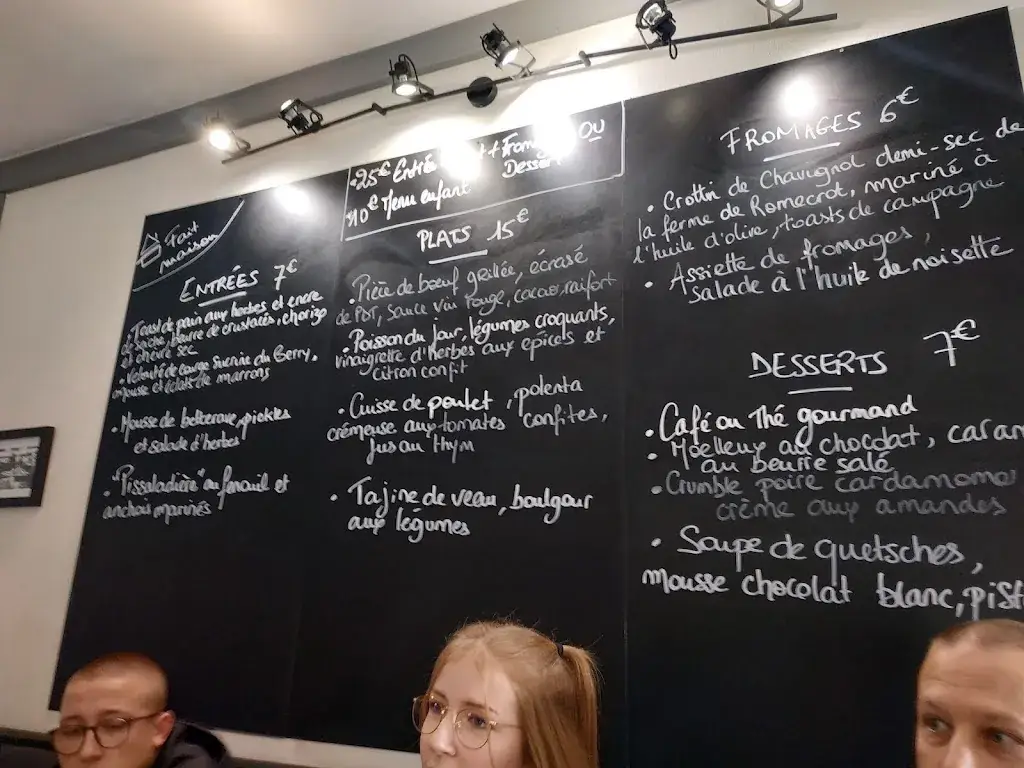 Fait
maison
ENTRÉES 7€
• Toast de pain aux herbes et encre
de seiche, beurre de crustacés, chorizo
et chèvre sec
• Velouté de courge Sucrine du Berry,
mousse et éclats de marrons
• Mousse de betterave, pickles
et salade d'herbes
• "Pissaladière" au fenouil et
anchois marinés
25€ Entrée + Fromage OU
Dessert
10€ Menu enfant
PLATS 15€
• Pièce de boeuf grillée, écrasé
de PDT, sauce vin rouge, cacao, raifort
• Poisson du Jour, légumes croquants,
vinaigrette d'herbes aux épices et
citron confit
• Cuisse de poulet, polenta
crémeuse aux tomates confites,
Jus au thym
• Tajine de veau, boulgour
aux légumes
FROMAGES 6€
• Crottin de Chavignol demi-sec de
la ferme de Romecrot, mariné à
l'huile d'olive, toasts de campagne
• Assiette de fromages,
salade à l'huile de noisette
DESSERTS 7€
• Café ou Thé gourmand
• Moelleux au chocolat, caram
au beurre salé
• Crumble poire cardamome
crème aux amandes
• Soupe de quetsches,
mousse chocolat blanc, pist